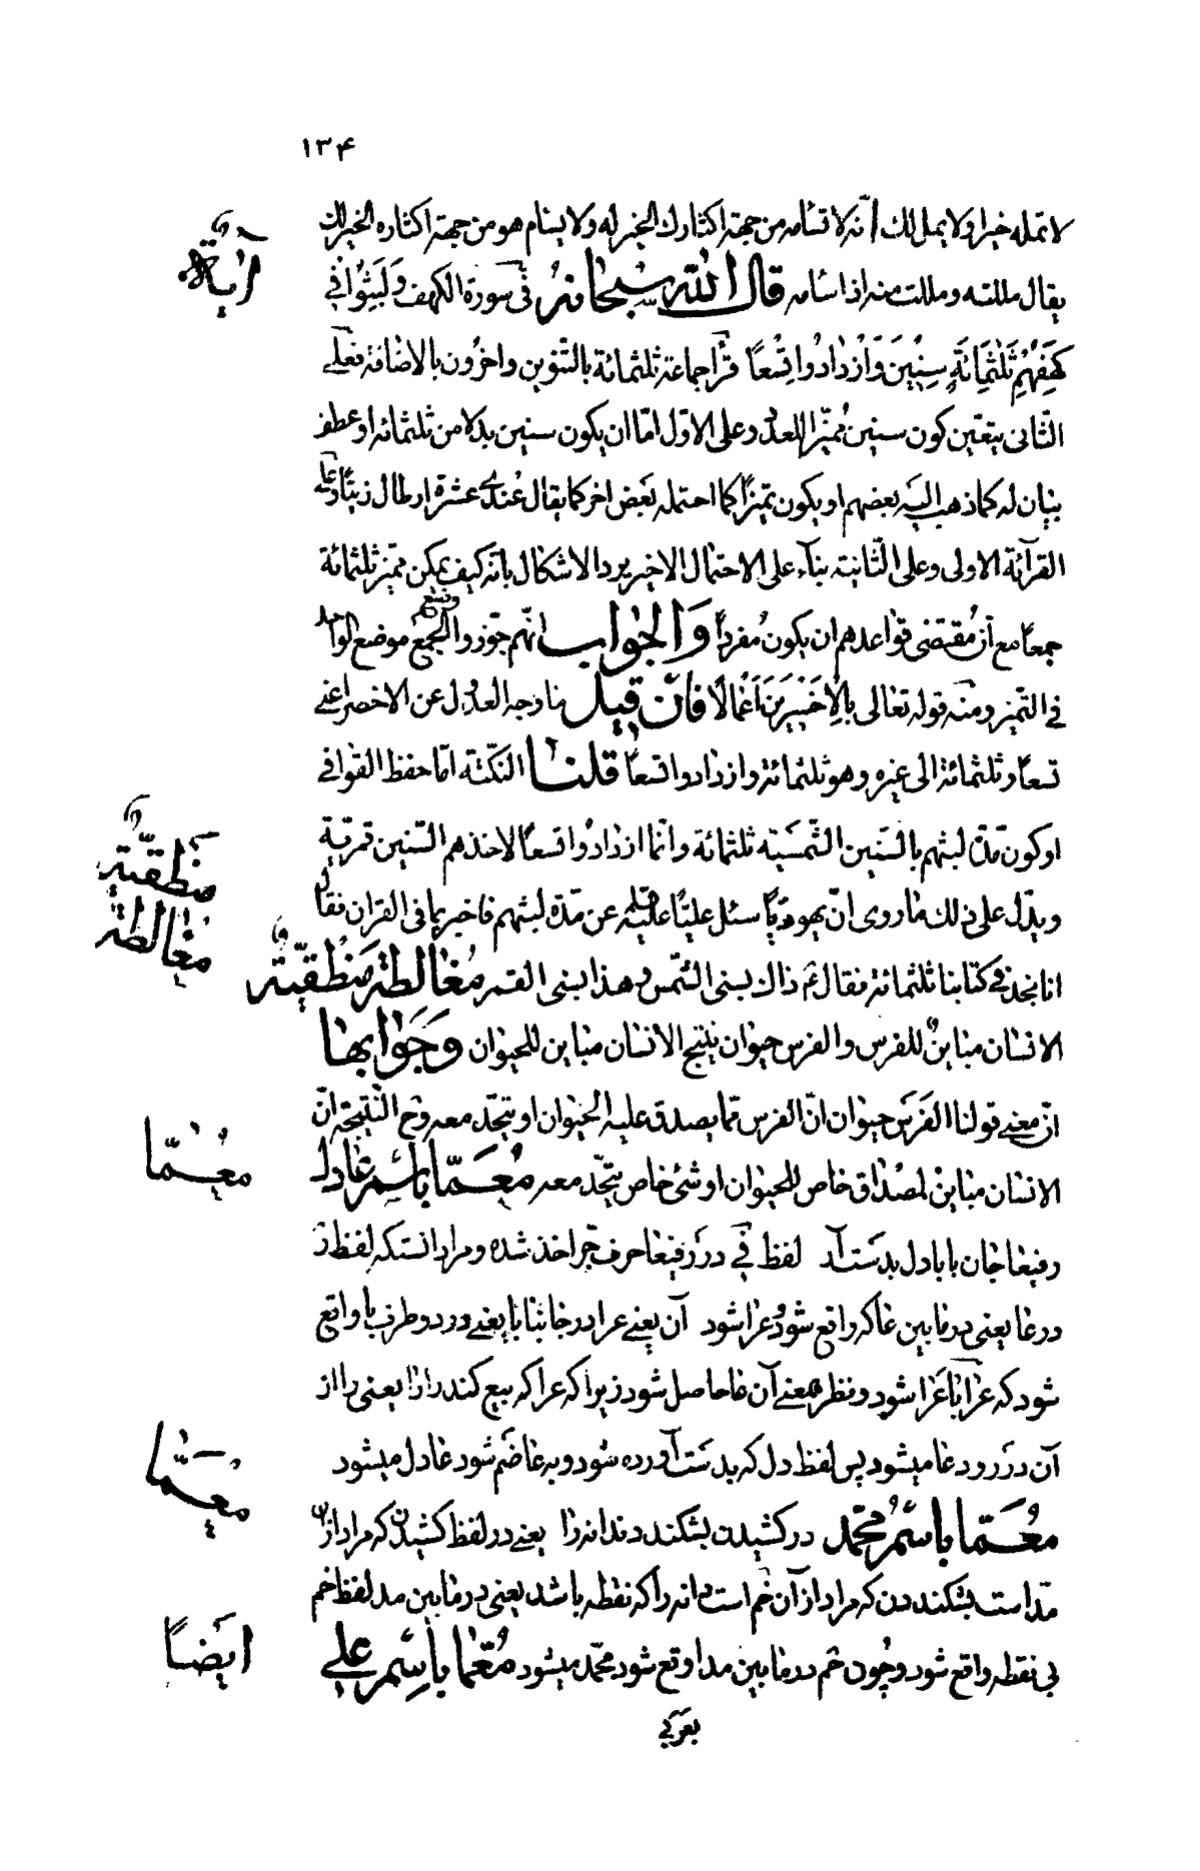 ۱۳۴
لا تمله خيرا ولا يمل لك انّه لا تسامه من جهة اكثارك الخير له ولا يسام هو من جهة اكثاره الخير لك
آية
يقال مللته ومللت منه اذا سامه قال الله سبحانه في سورة الكهف وَلَبِثُوا في
كَهفِهِم ثَلٰثَمِائَةٍ سِنِينَ وَازْدَادُوا تِسْعاً قرأ جماعة ثلثمائة بالتنوين واخرون بالاضافة فعلى
الثانى يتعيّن كون سنين مميّزا للعدد وعلى الاوّل امّا ان يكون سنين بدلا من ثلثمائه او عطف
بيان له كما ذهب اليه بعضهم او يكون تميزاً كما احتمله بعض اخر كما يقال عندى عشرة ارطال زيتاً وعلى
القرآئة الاولى وعلى الثّانية بناء على الاحتمال الاخير يرد الاشكال بانّه كيف يمكن تميّز ثلثمائة
جمعاً مع انّ مقتضى قواعدهم ان يكون مفرداً وَالجواب انّهم جوّزوا وضع الجمع موضع الواحد
في التميز ومنه قوله تعالى بِالاَخسَرِينَ اَعْمَالًا فان قيل ما وجه العدول عن الاخصر اعنى
تسعا وثلثمائة الى غيره وهو ثلثمائة وازدادوا تسعاً قلنا النكتة امّا حفظ القوافى
او كون مدّة لبثهم بالسّنين الشّمسيّة ثلثمائة وانّما ازدادوا تسعاً لاخذهم السّنين قمريّة
مغالطة منطقيّة
ويدّل على ذلك ما روى انّ يهوديّاً سئل عليّاً عليه السلام عن مدّة لبثهم فاخبر بما فى القران فقال
انا نجد فى كتابنا ثلثمائة فقال ع ذاك بسنى الشّمس وهذا بسنى القمر مُغالطة مَنطقيّة
الانسان مباين للفرس والفرس حيوان ينتج الانسان مباين للحيوان وَجَوابها
انّ معنى قولنا الفرس حيوان انّ الفرس ممّا يصدق عليه الحيوان او يتحّد معه وح النّتيجة انّ
معمّا
الانسان مباين لمصداق خاص للحيوان او شئ خاص يتّحد معه مُعَمّا باِسْم عادل
رفيعا جان با با دل بدست آد لفظ فى در رفيعا حرف جرّ اخذ شده ومراد انستكه لفظ ر
در عا يعنى در مابين عا كه واقع شود عرا شود آن يعنى عرا در جا بنا با يعنى در دو طرف با واقع
شود كه عرا با عرا شود ونظر بمعنى آن عا حاصل شود زيرا كه عرا كه بيع كند را را يعنى را از
آن در رود عا ميشود پس لفظ دل كه بدست آورده شود وبه عا ضم شود عادل ميشود
معمّا
مُعَمّا باِسْم محمّد در كشيدت بشكند دندانه را يعنى در لفظ كشيدن كه مراد از آن
مدّ است بشكند دن كه مراد از آن خم است دانه را كه نقطه باشد يعنى در مابين مد لفظ خم
بى نقطه واقع شود وچون حم در مابين مد واقع شود محمّد ميشود مُعمّا باِسْم على
ايضاً
بعربى